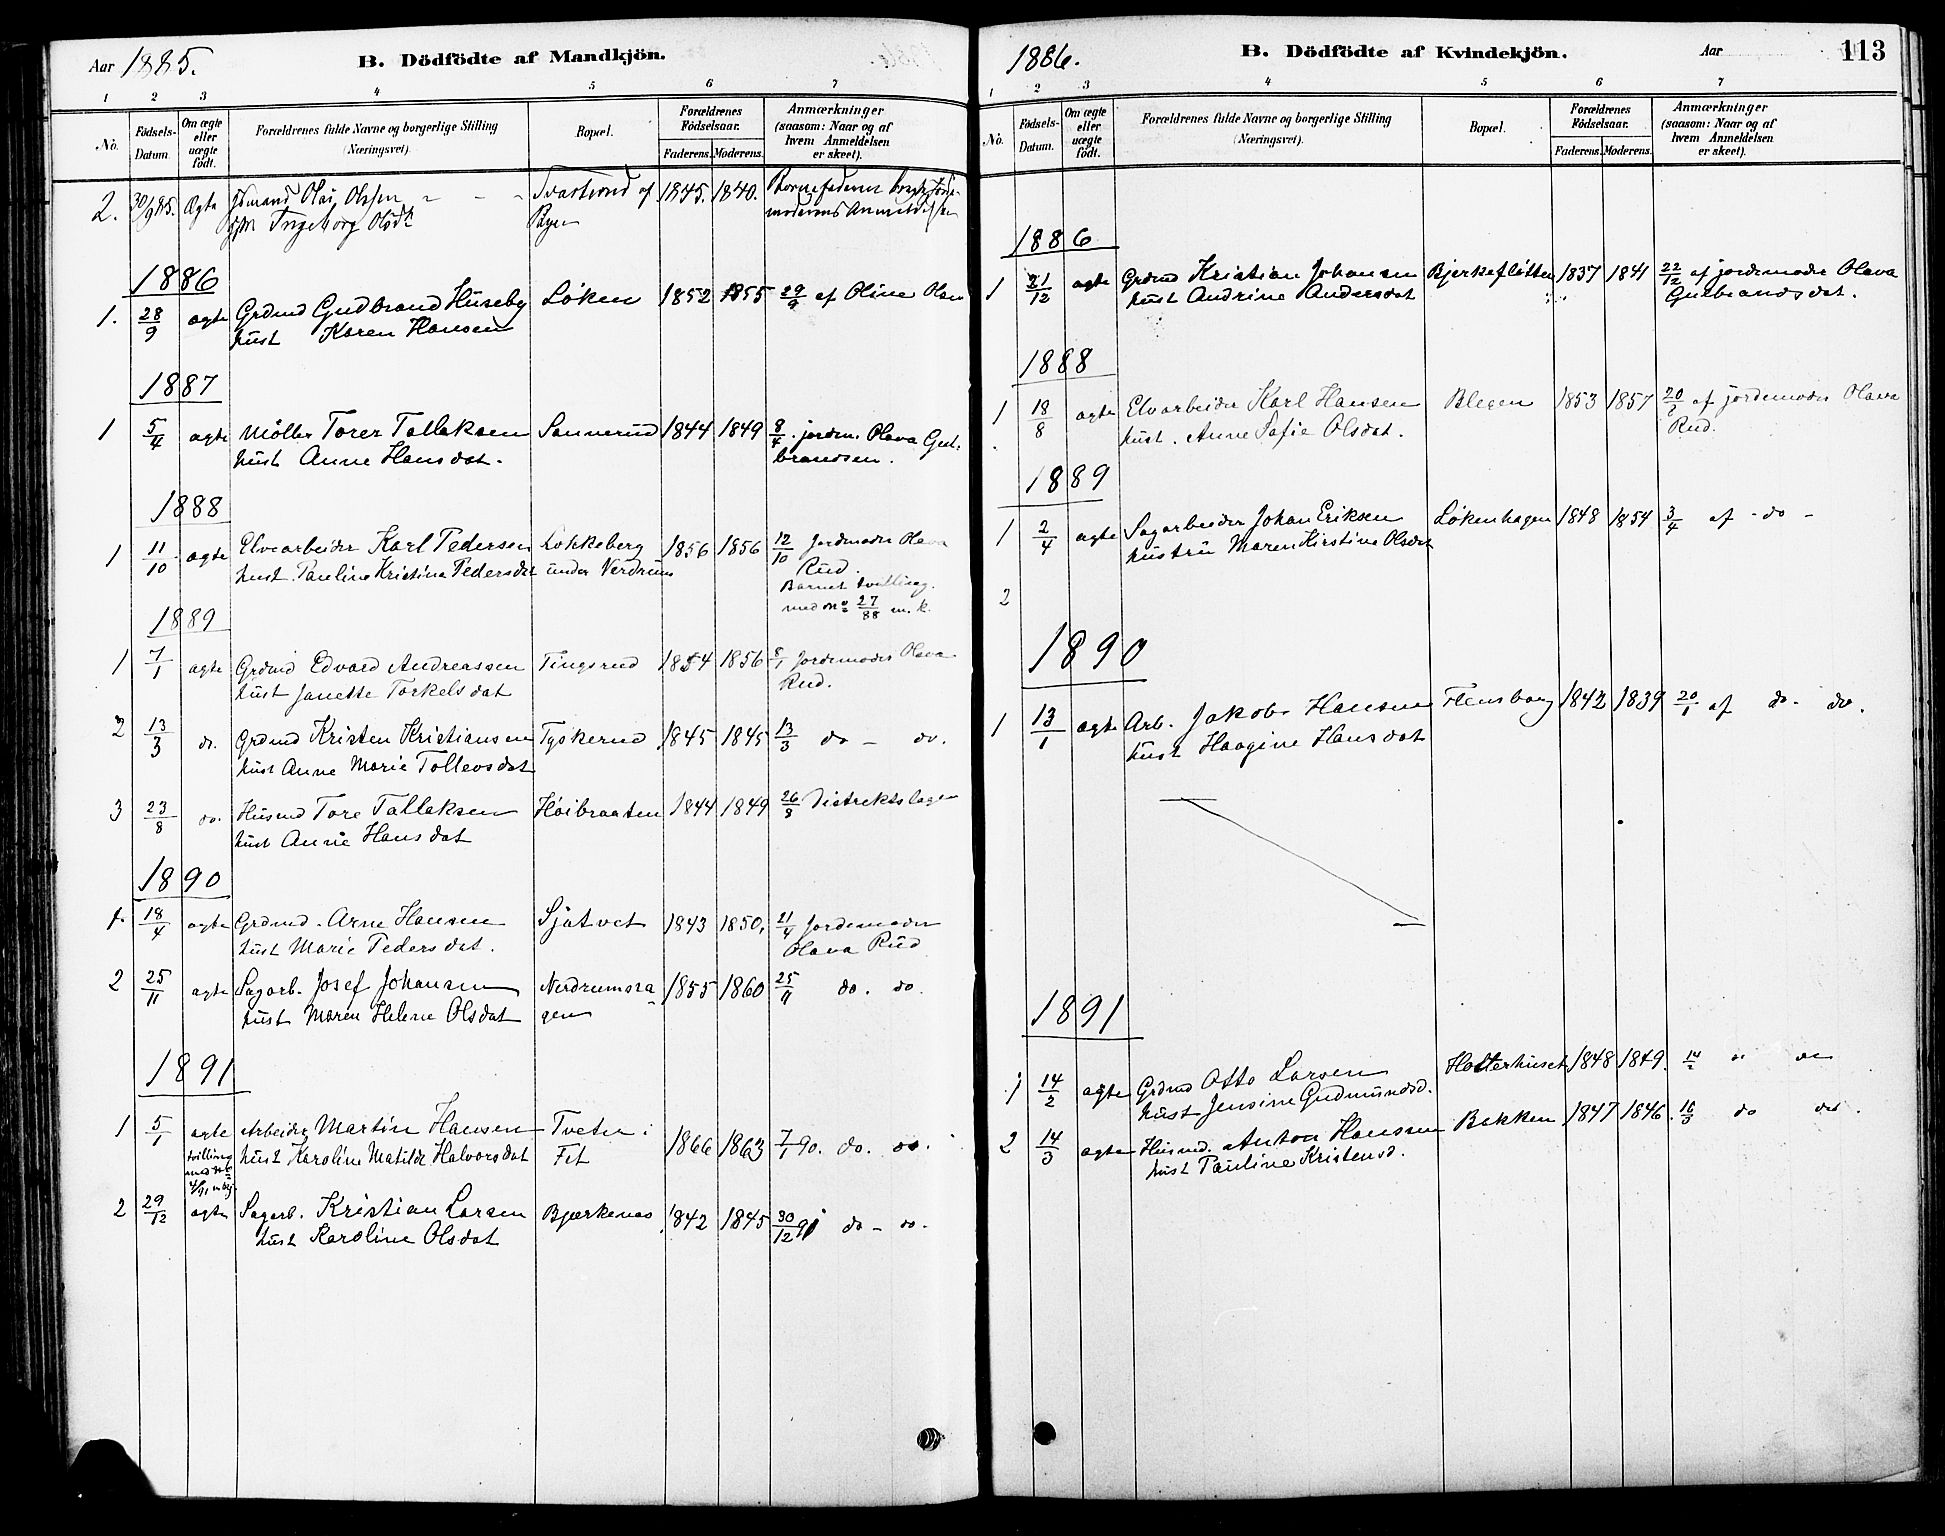 Aar 1885.
B. Dödfödte af Mandkjön.
1 2 3 4 5 6 7
No.
Födsels-Datum.
Om ægte eller uægte födt.
Forældrenes fulde Navne og borgerlige Stilling
(Næringsvei).
Bopæl.
Forældrenes Födselsaar.
Faderens. Moderens.
Anmærkninger
(saasom: Naar og af
hvem Anmeldelsen
er skeet).
2. 30/9 85. Ægte Olsen 1845. 1840.
Ingeborg Olsdt
1886
1. 28/9 ægte Grdmd Gudbrand Huseby Løken 1852 1855 29/9 af Oline Olsen
hust Karen Hansen
1887
1 5/4 ægte Møller Torer Tollaksen Sannerud 1844 1849 8/4 jordm. Olava Gul-
hust Anne Hansdat. brandsen.
1888
1 11/10 ægte Elvearbeider Karl Pedersen Lokkeberg 1856 1856 12/10 Jordmoder Olava
hust. Pauline Kristine Pedersdat under Nerdrum Rud.
Barnet tvilling
med No 27/88 m. k.
1889
1 7/1 ægte Grdmd Edvard Andreassen Tingsrud 1854 1856 8/1 Jordemoder Olava
hust Janette Torkelsdat Rud.
2 13/3 do. Grdmd Kristen Kristiansen Tyskerud 1845 1845 13/3 do – do.
hust Anne Marie Tollevsdat
3 23/8 do. Husmd Tore Tallaksen Høibraaten 1844 1849 26/8 Distriktslægen
hust Anne Hansdat
1890
1. 18/4 ægte Grdmd. Arne Hansen Sjøtvet 1843 1850. 21/4 Jordemoder
hust Marie Pedersdat. Olava Rud
2 25/11 ægte Sagarb. Josef Johansen Nerdrumsra- 1855 1860 25/11 do. do.
hust Maren Helene Olsdat gen
1891
1 5/1 ægte Arbeider Martin Hansen Tveter i 1866 1863 7/1 90. do. do.
tvilling hust Karoline Matilde Halvorsdat Fet
2 29/12 ægte Sagarb. Kristian Larsen Bjerkenes 1842 1845 30/12 91 do – do.
hust Karoline Olsdat
1886.
B. Dödfödte af Kvindekjön.
Aar
113
1 2 3 4 5 6 7
No.
Födsels-Datum.
Om ægte eller uægte födt.
Forældrenes fulde Navne og borgerlige Stilling
(Næringsvei).
Bopæl.
Forældrenes Födselsaar.
Faderens. Moderens.
Anmærkninger
(saasom: Naar og af
hvem Anmeldelsen
er skeet).
1886
1 21/12 ægte Grdmd Kristian Johansen Bjerkefløtten 1837 1841 22/12 af jordemoder Olava
hust Andrine Andersdat Gulbrandsdat.
1888
1 18/8 ægte Elvarbeider Karl Hansen Blegen 1853 1857 20/8 af jordemoder Olava
hust. Anne Sofie Olsdat. Rud.
1889
1 2/4 ægte Sagarbeider Johan Eriksen Løkenhagen 1848 1854 3/4 af - do -
hustru Maren Kirstine Olsdat
2
1890
1 13/1 ægte Arb. Jakob Hansen Flensborg 1842 1839 20/1 af do. do.
hust Haagine Hansdat
1891
1 14/2 ægte Grdmd Otto Larsen Holterhuset 1848 1849. 14/2 " do
hust Jensine Gudmundsd.
2 14/3 ægte Husmd. Anton Hansen Bakken 1847 1846. 16/3 do do.
hust Pauline Kristensd.